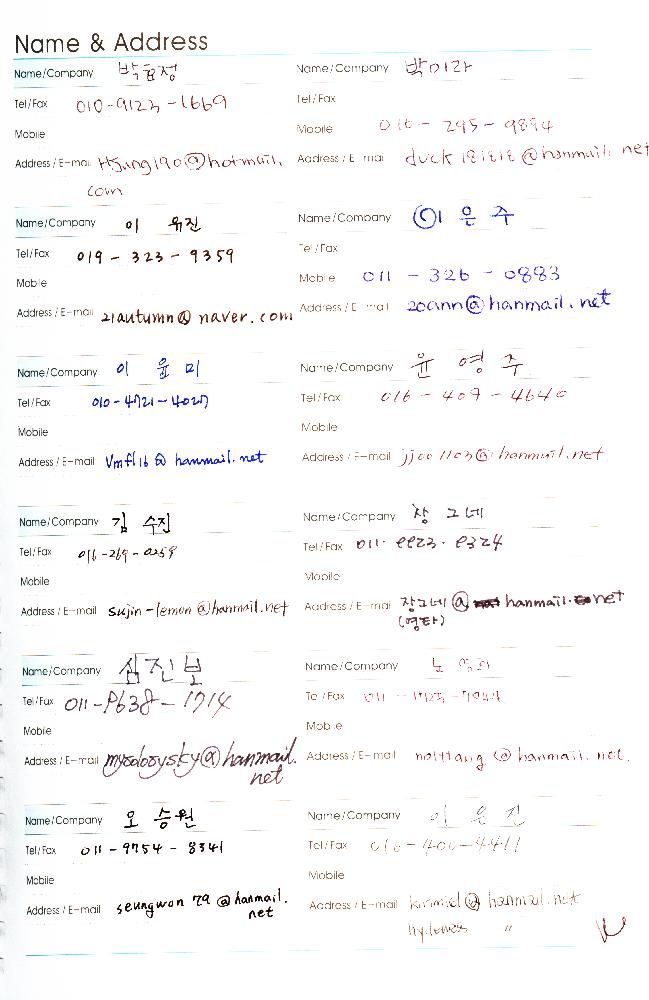 Name & Address
Name/Company 박윤정
Tel/Fax 010-9123-1669
Mobile
Address / E-mail Hjung190@hotmail.
com
Name/Company 박미라
Tel/Fax
Mobile 016 - 295 - 9894
Address / E-mail duck181818@hanmail.net
Name/Company 이 유진
Tel/Fax 019 - 323 - 9359
Mobile
Address / E-mail 21autumn@naver.com
Name/Company 이 은 주
Tel/Fax
Mobile 011 - 326 - 0883
Address / E-mail 20ann@hanmail.net
Name/Company 이 윤 미
Tel/Fax 010-4721-4027
Mobile
Address / E-mail Vmfl16@hanmail.net
Name/Company 윤 영 주
Tel/Fax 016 - 409 - 4640
Mobile
Address / E-mail jjoo1103@hanmail.net
Name/Company 김 수진
Tel/Fax 016-269-0259
Mobile
Address / E-mail sujin-lemon@hanmail.net
Name/Company 장 그네
Tel/Fax
Mobile
Address / E-mail 장그네@hanmail.net
(영타)
Name/Company 심진보
Tel/Fax 011-9638-1714
Mobile
Address / E-mail @hanmail.
net
Name/Company
Tel/Fax
Mobile
Address / E-mail nolttang@hanmail.net.
Name/Company 오 승원
Tel/Fax 011 - 9754 - 8341
Mobile
Address / E-mail seungwon79@hanmail.
net
Name/Company 이 은 진
Tel/Fax 016-400-4411
Mobile
Address / E-mail @hanmail.net
"